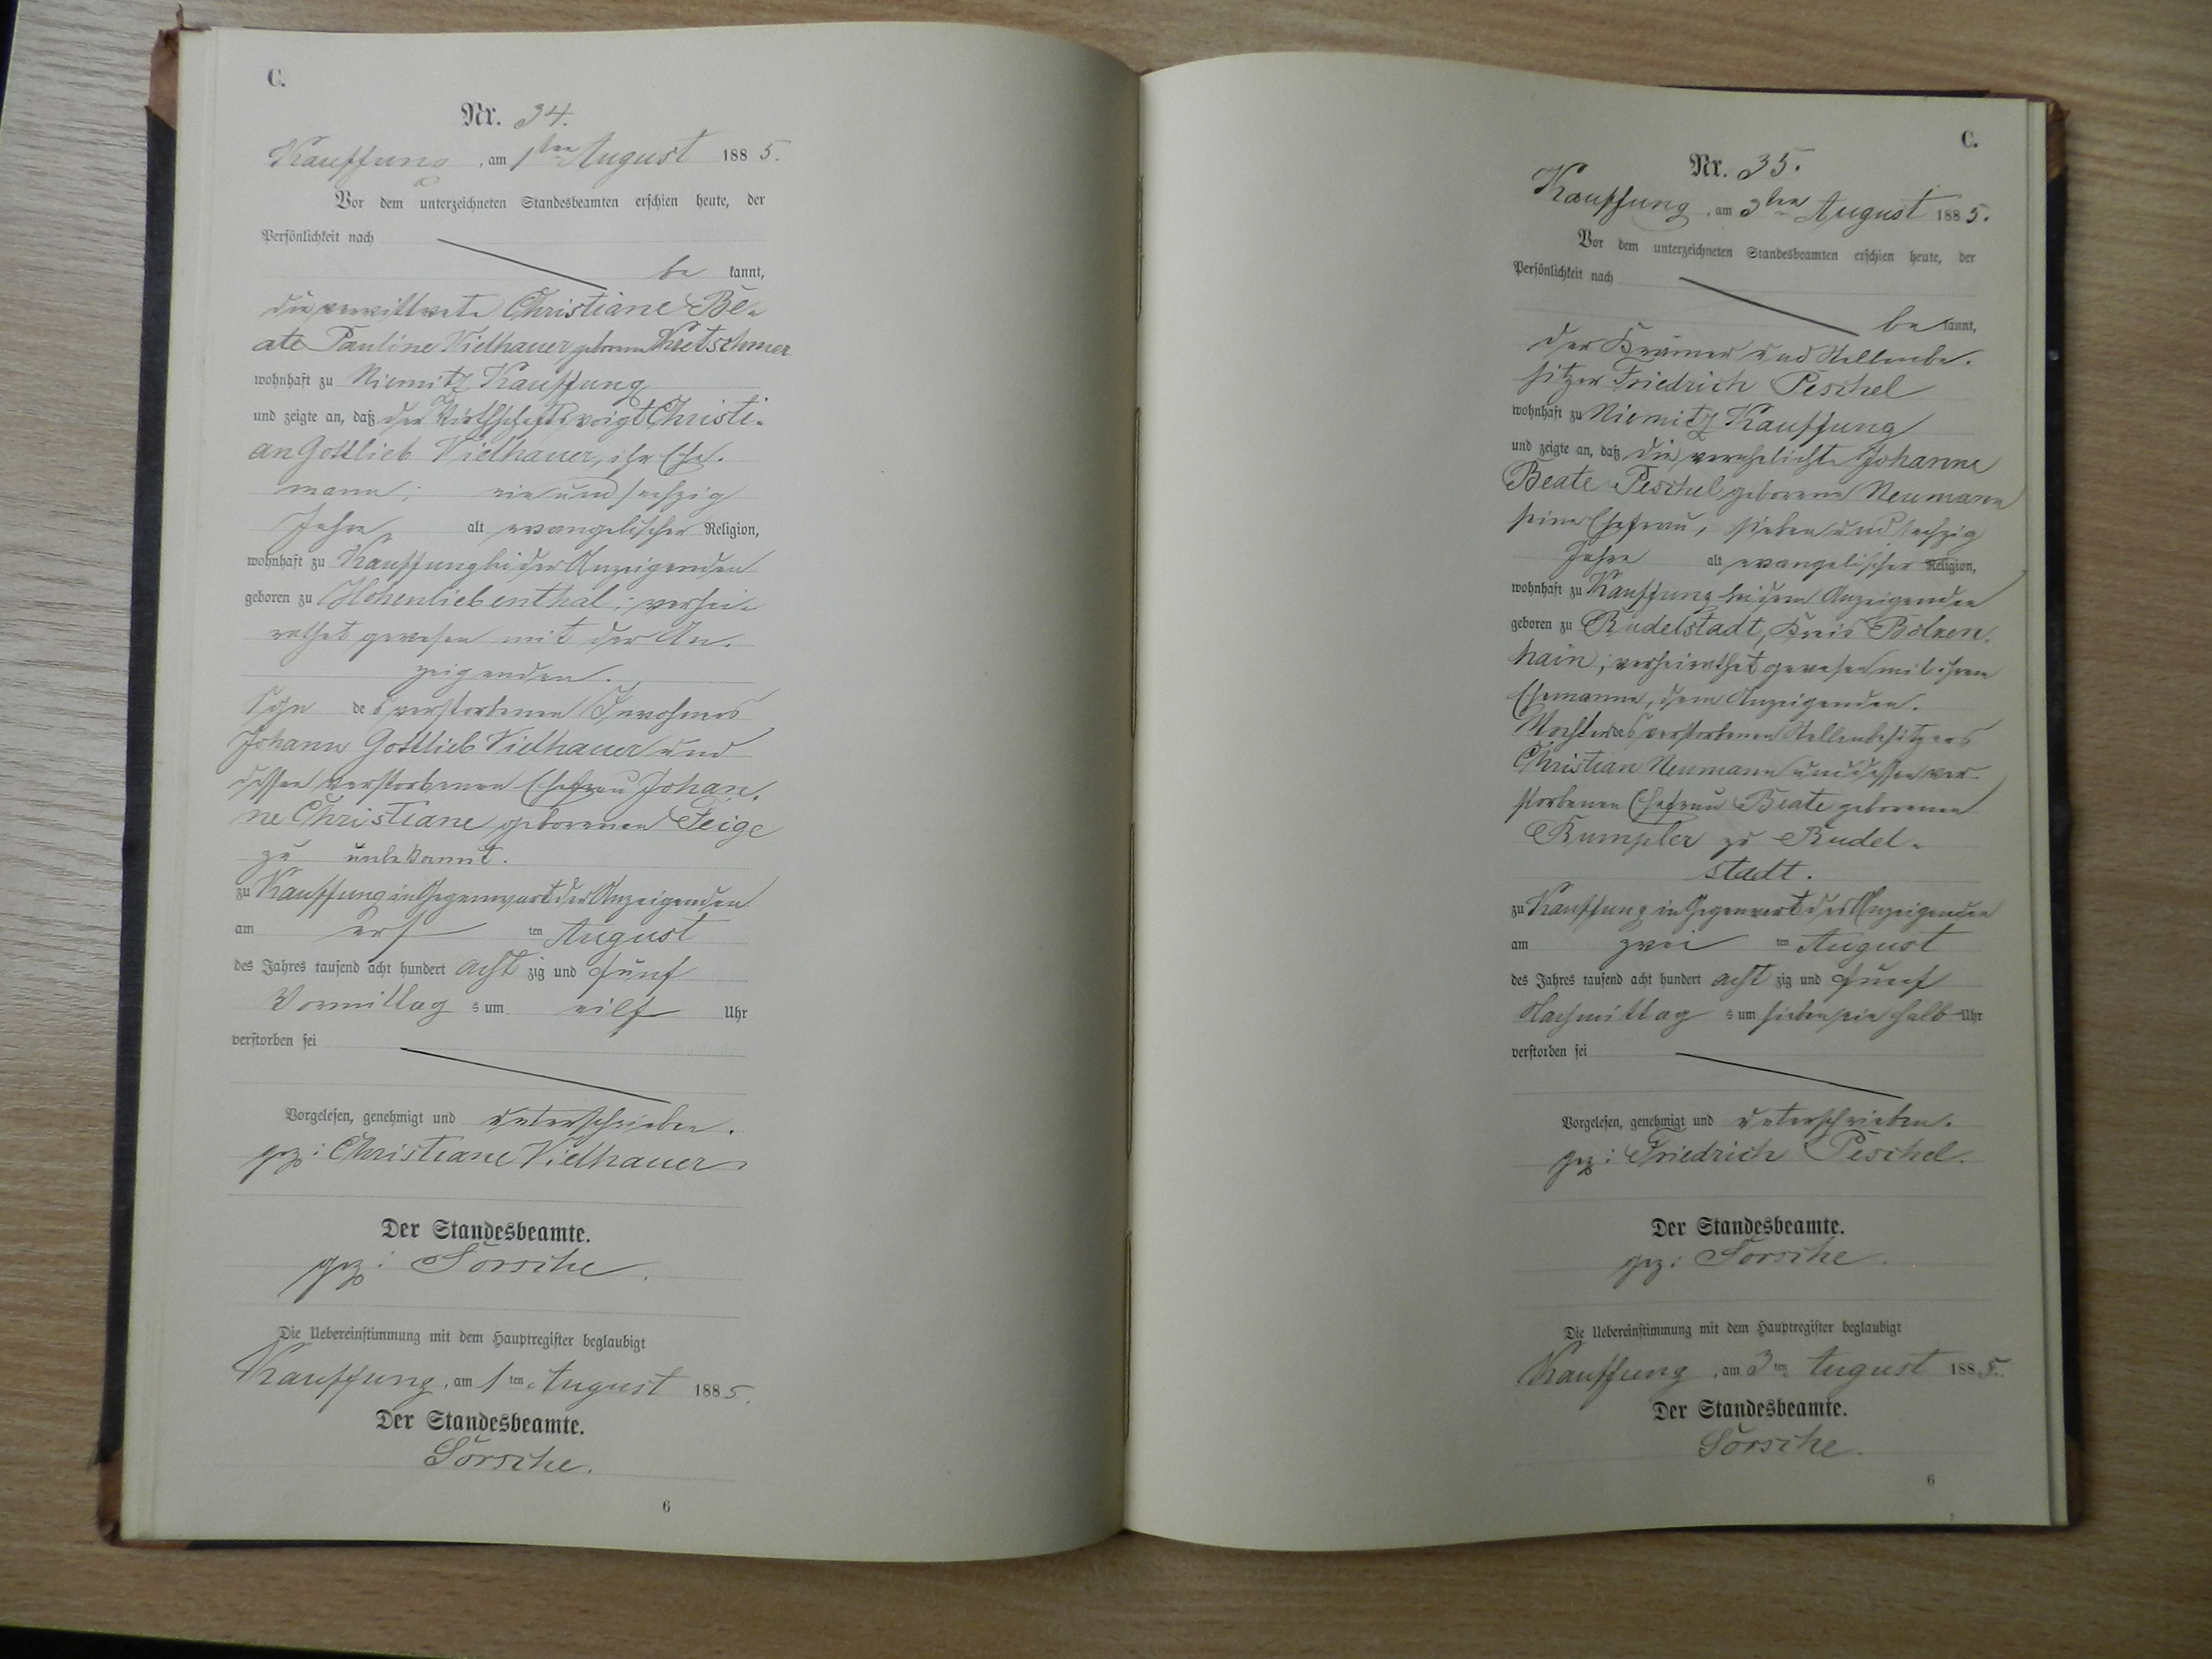 C.
Nr. 34.
Kauffung, am 1ten August 1885.
Vor dem unterzeichneten Standesbeamten erschien heute, der
Persönlichkeit nach
be kannt,
die verwittwete Christiane Be-
ate Pauline Vielhauer, geborene Kretschmer
wohnhaft zu Niemitz Kauffung
und zeigte an, daß der Wirthschaftsvoigt Christi-
an Gottlieb Vielhauer, ihr Ehe-
mann; ein und sechzig
Jahre alt evangelischer Religion,
wohnhaft zu Kauffung bei der Anzeigenden
geboren zu Hohenliebenthal; verhei-
rathet gewesen mit der An-
zeigenden.
Sohn des verstorbenen Inwohners
Johann Gottlieb Vielhauer und
dessen verstorbenen Ehefrau Johan-
ne Christiane geborenen Feige
zu unbekannt.
zu Kauffung in Gegenwart der Anzeigenden
am ers ten August
des Jahres tausend acht hundert acht zig und fünf
Vormittag s um eilf Uhr
verstorben sei
Vorgelesen, genehmigt und unterschrieben.
gez: Christiane Vielhauer
Der Standesbeamte.
gez: Sorsche.
Die Uebereinstimmung mit dem Hauptregister beglaubigt
Kauffung, am 1ten August 1885.
Der Standesbeamte.
Sorsche.
6
C.
Nr. 35.
Kauffung, am 3ten August 1885.
Vor dem unterzeichneten Standesbeamten erschien heute, der
Persönlichkeit nach
be kannt,
der Krämer und Stellenbe-
sitzer Friedrich Peschel
wohnhaft zu Niemitz Kauffung
und zeigte an, daß die verehelichte Johanne
Beate Peschel geborene Neumann
seine Ehefrau, sieben und sechzig
Jahre alt evangelischer Religion,
wohnhaft zu Kauffung bei dem Anzeigenden
geboren zu Rudelstadt, Kreis Bolken-
hain; verheirathet gewesen mit ihrem
Ehemanne, dem Anzeigenden.
Tochter des verstorbenen Stellenbesitzers
Christian Neumann und dessen ver-
storbenen Ehefrau Beate geborenen
Rumpler zu Rudel-
stadt.
zu Kauffung in Gegenwart des Anzeigenden
am zwei ten August
des Jahres tausend acht hundert acht zig und fünf
Nachmittag s um sieben ein halb Uhr
verstorben sei
Vorgelesen, genehmigt und unterschrieben.
gez: Friedrich Peschel.
Der Standesbeamte.
gez: Sorsche.
Die Uebereinstimmung mit dem Hauptregister beglaubigt
Kauffung, am 3ten August 1885.
Der Standesbeamte.
Sorsche.
6